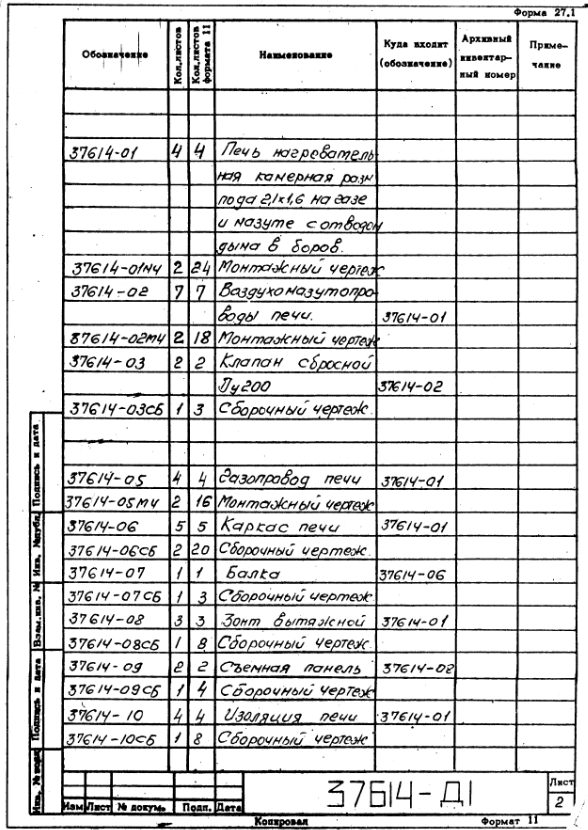 Форма 27.1
Обозначение Кол.листов Кол.листов формата 11 Наименование Куда входит (обозначение) Архивный инвентарный номер Примечание
37614-01 4 4 Печь нагреватель-
ная камерная разм
пода 2,1х1,6 на газе
и мазуте с отводом
дыма в боров.
37614-01МЧ 2 24 Монтажный чертеж
37614-02 7 7 Воздухомазутопро-
воды печи. 37614-01
37614-02МЧ 2 18 Монтажный чертеж
37614-03 2 2 Клапан сбросной
Ду200 37614-02
37614-03СБ 1 3 Сборочный чертеж.
37614-05 4 4 Газопровод печи 37614-01
37614-05МЧ 2 16 Монтажный чертеж
37614-06 5 5 Каркас печи 37614-01
37614-06СБ 2 20 Сборочный чертеж.
37614-07 1 1 Балка 37614-06
37614-07СБ 1 3 Сборочный чертеж
37614-08 3 3 Зонт вытяжной 37614-01
37614-08СБ 1 8 Сборочный чертеж.
37614-09 2 2 Съемная панель 37614-08
37614-09СБ 1 4 Сборочный чертеж
37614-10 4 4 Изоляция печи 37614-01
37614-10СБ 1 8 Сборочный чертеж
Подпись и дата
Инв. №дубл.
Взам.инв. №
Подпись и дата
Инв. № подл
Изм Лист № докум. Подп. Дата
37614-Д1
Лист
2
Копировал Формат 11